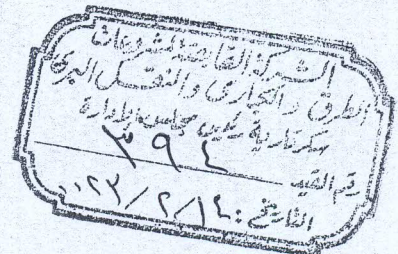 الشركة القابضة لمشروعات
الطرق والكبارى والنقل البرى
سكرتارية مجلس الإدارة
رقم القيد ٣٩٤
التاريخ : ١٤ / ٢ / ٢٠٢٣